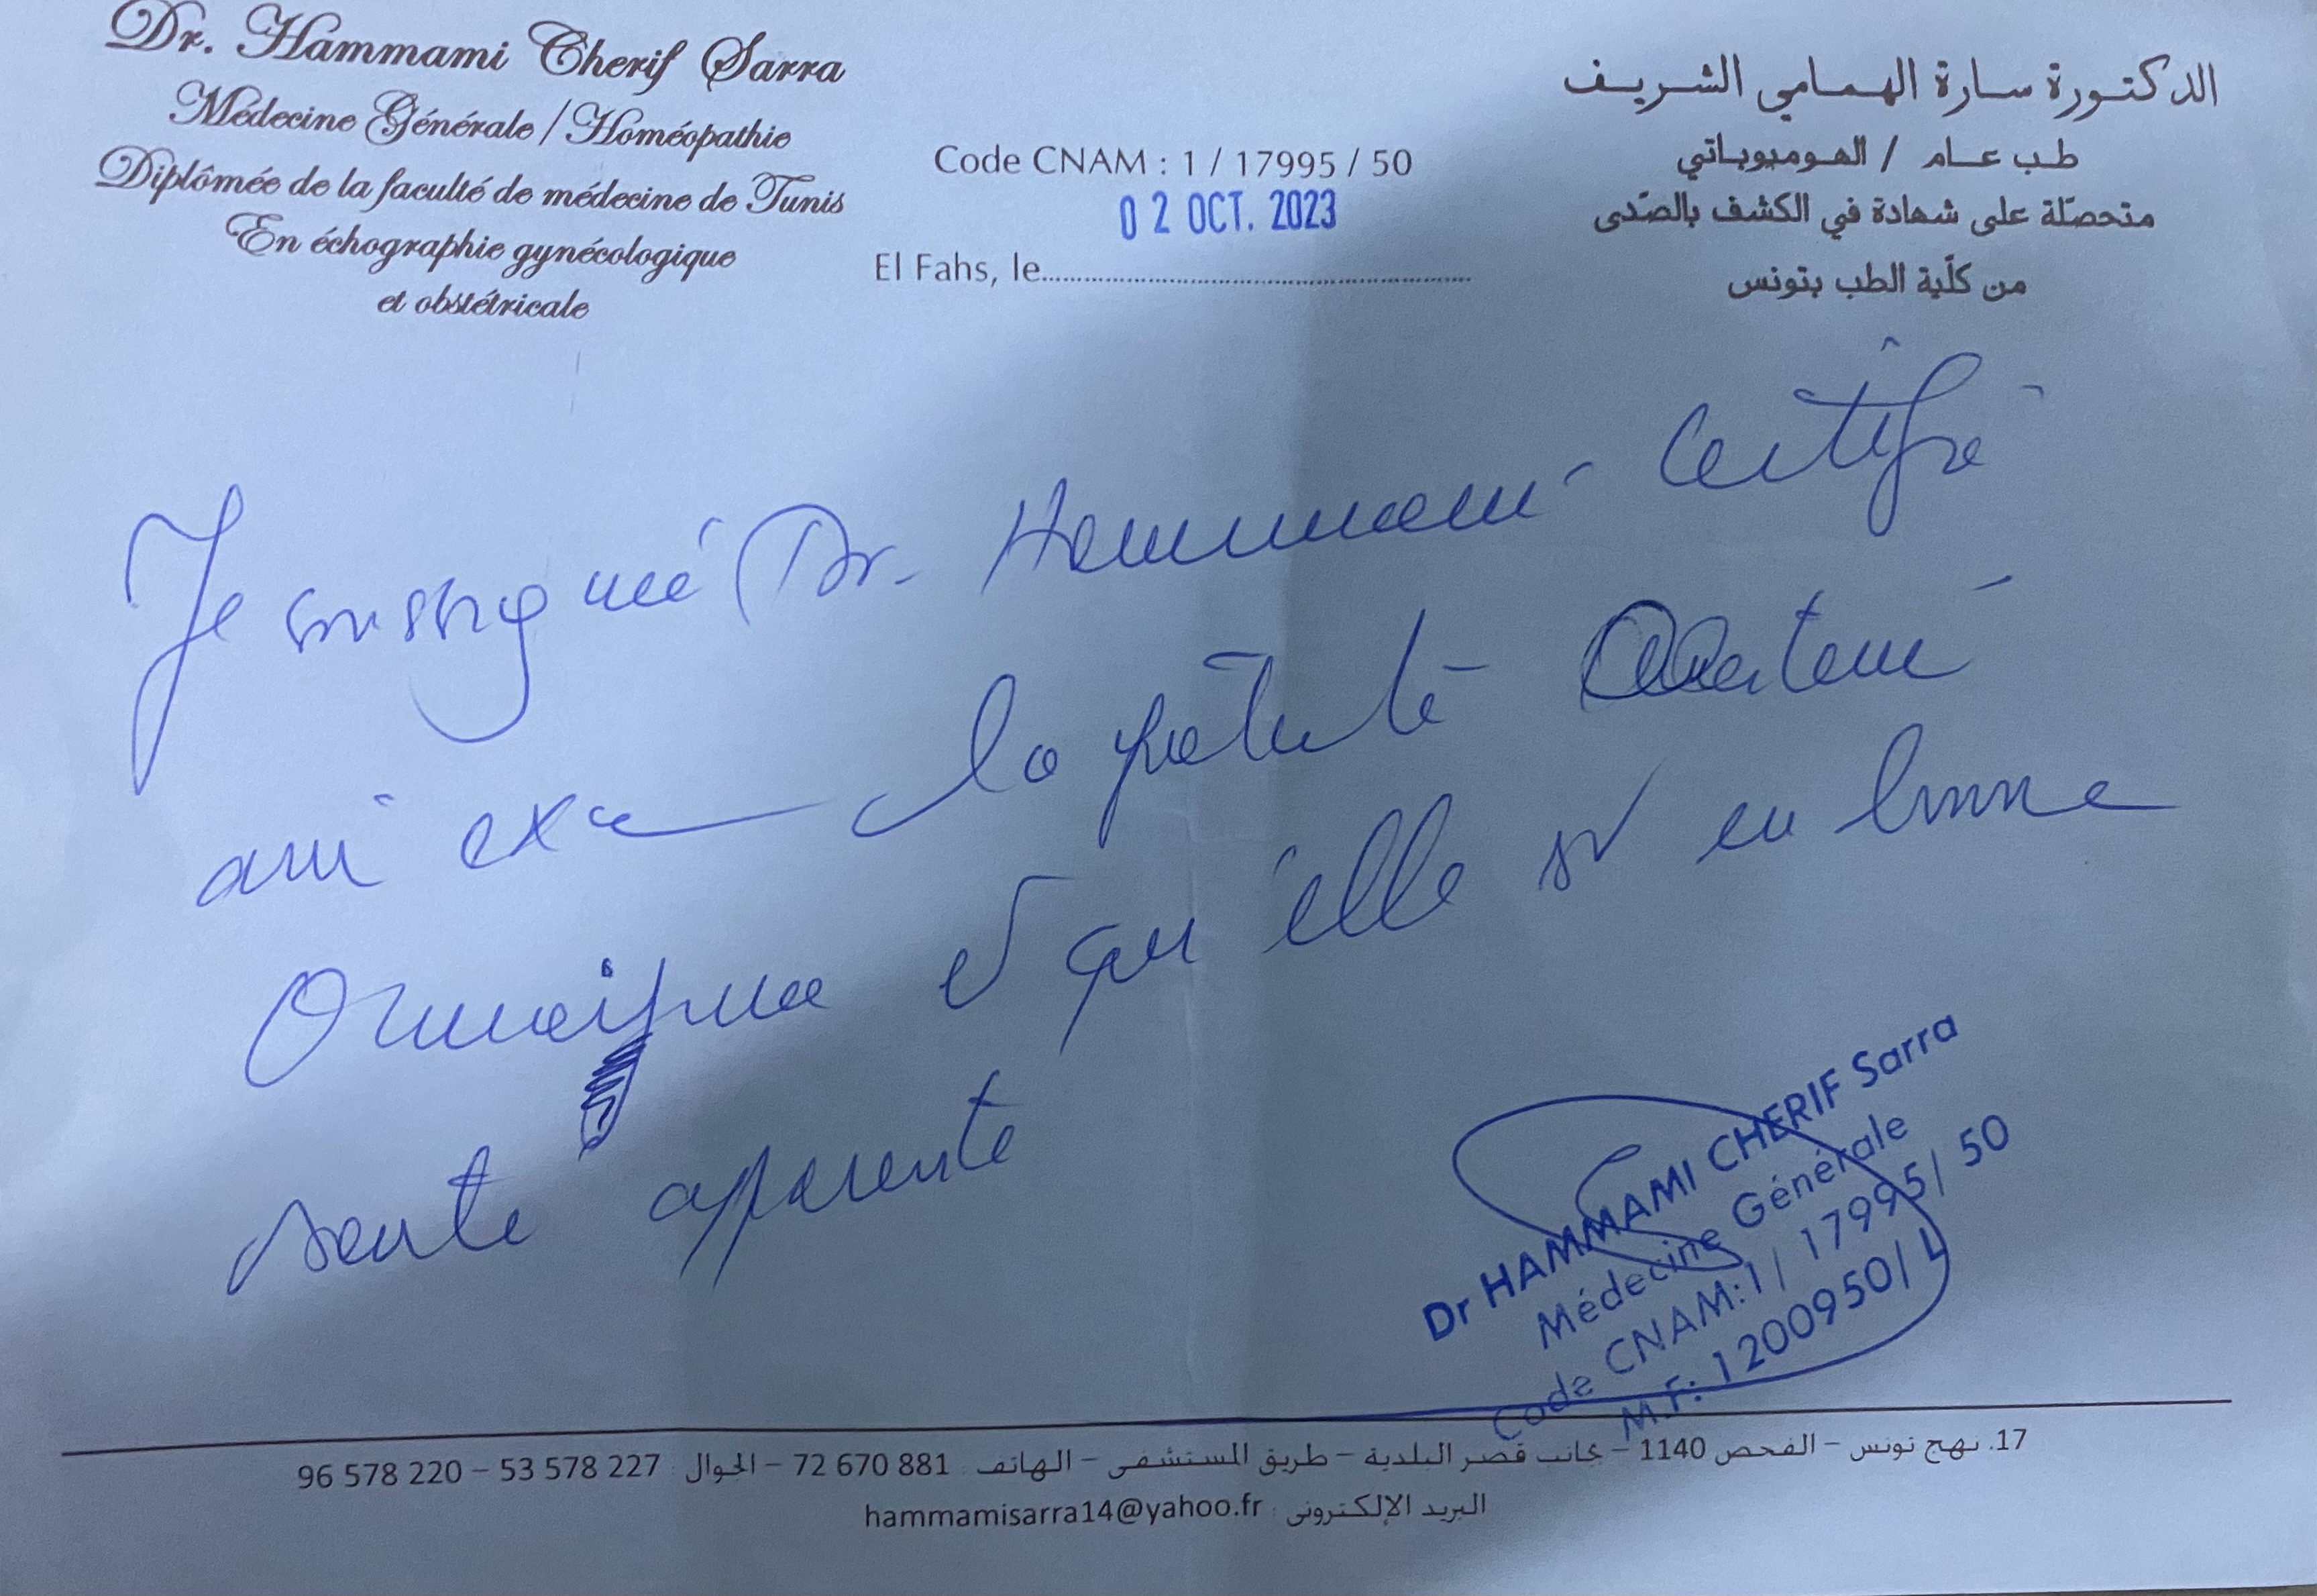 Dr. Hammami Cherif Sarra
Médecine Générale / Homéopathie
Diplômée de la faculté de médecine de Tunis
En échographie gynécologique
et obstétricale
Code CNAM : 1 / 17995 / 50
02 OCT. 2023
El Fahs, le
الدكتورة سارة الهمامي الشريف
طب عام / الهوميوباتي
متحصّلة على شهادة في الكشف بالصّدى
من كلّية الطب بتونس
Je soussigné Dr. Hammami Certifie
la patiente
et qu'elle est en bonne
santé apparente
Dr HAMMAMI CHERIF Sarra
Médecine Générale
Code CNAM:1/ 17995/ 50
M.F: 1200950/ L
17. نهج تونس – الفحص 1140 – بجانب قصر البلدية – طريق المستشفى – الهاتف : 72 670 881 – الجوال : 53 578 227 – 96 578 220
البريد الإلكتروني : hammamisarra14@yahoo.fr